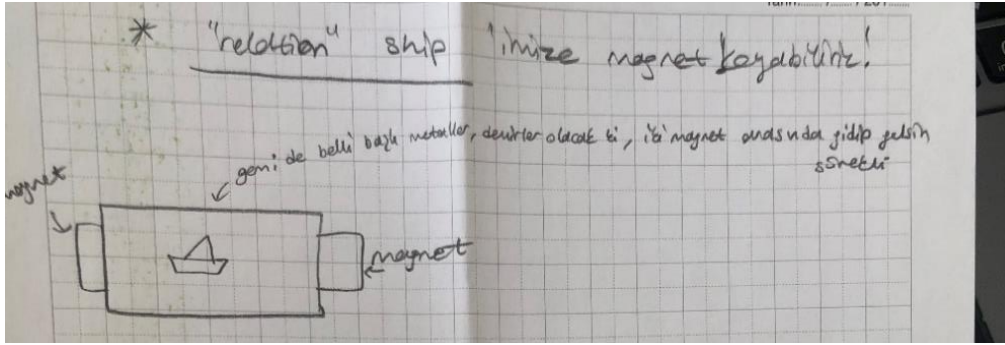 * "relation" ship 'imize magnet koyabiliriz!
gemi de belli başlı metaller, demirler olacak ki, iki magnet arasında gidip gelsin
sürekli
magnet
magnet